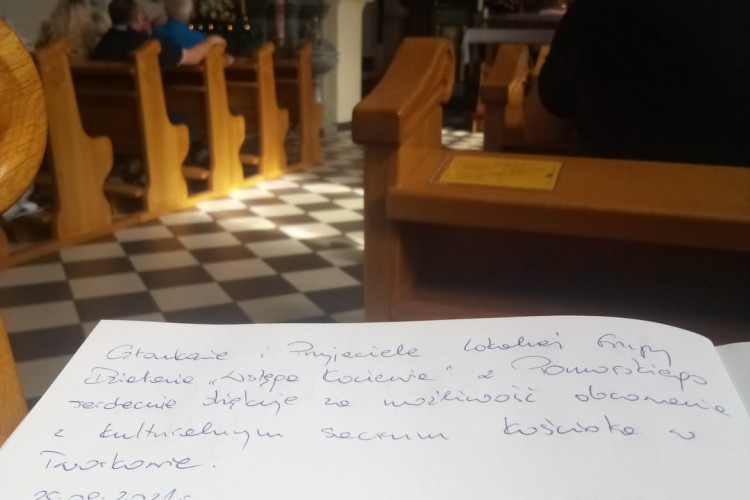 Członkowie i Przyjaciele Lokalnej Grupy
Działania „Wstęga Kociewia" z Pomorskiego
serdecznie dziękują za możliwość obcowania
z kulturalnym sacrum kościoła w
Tworkowie.